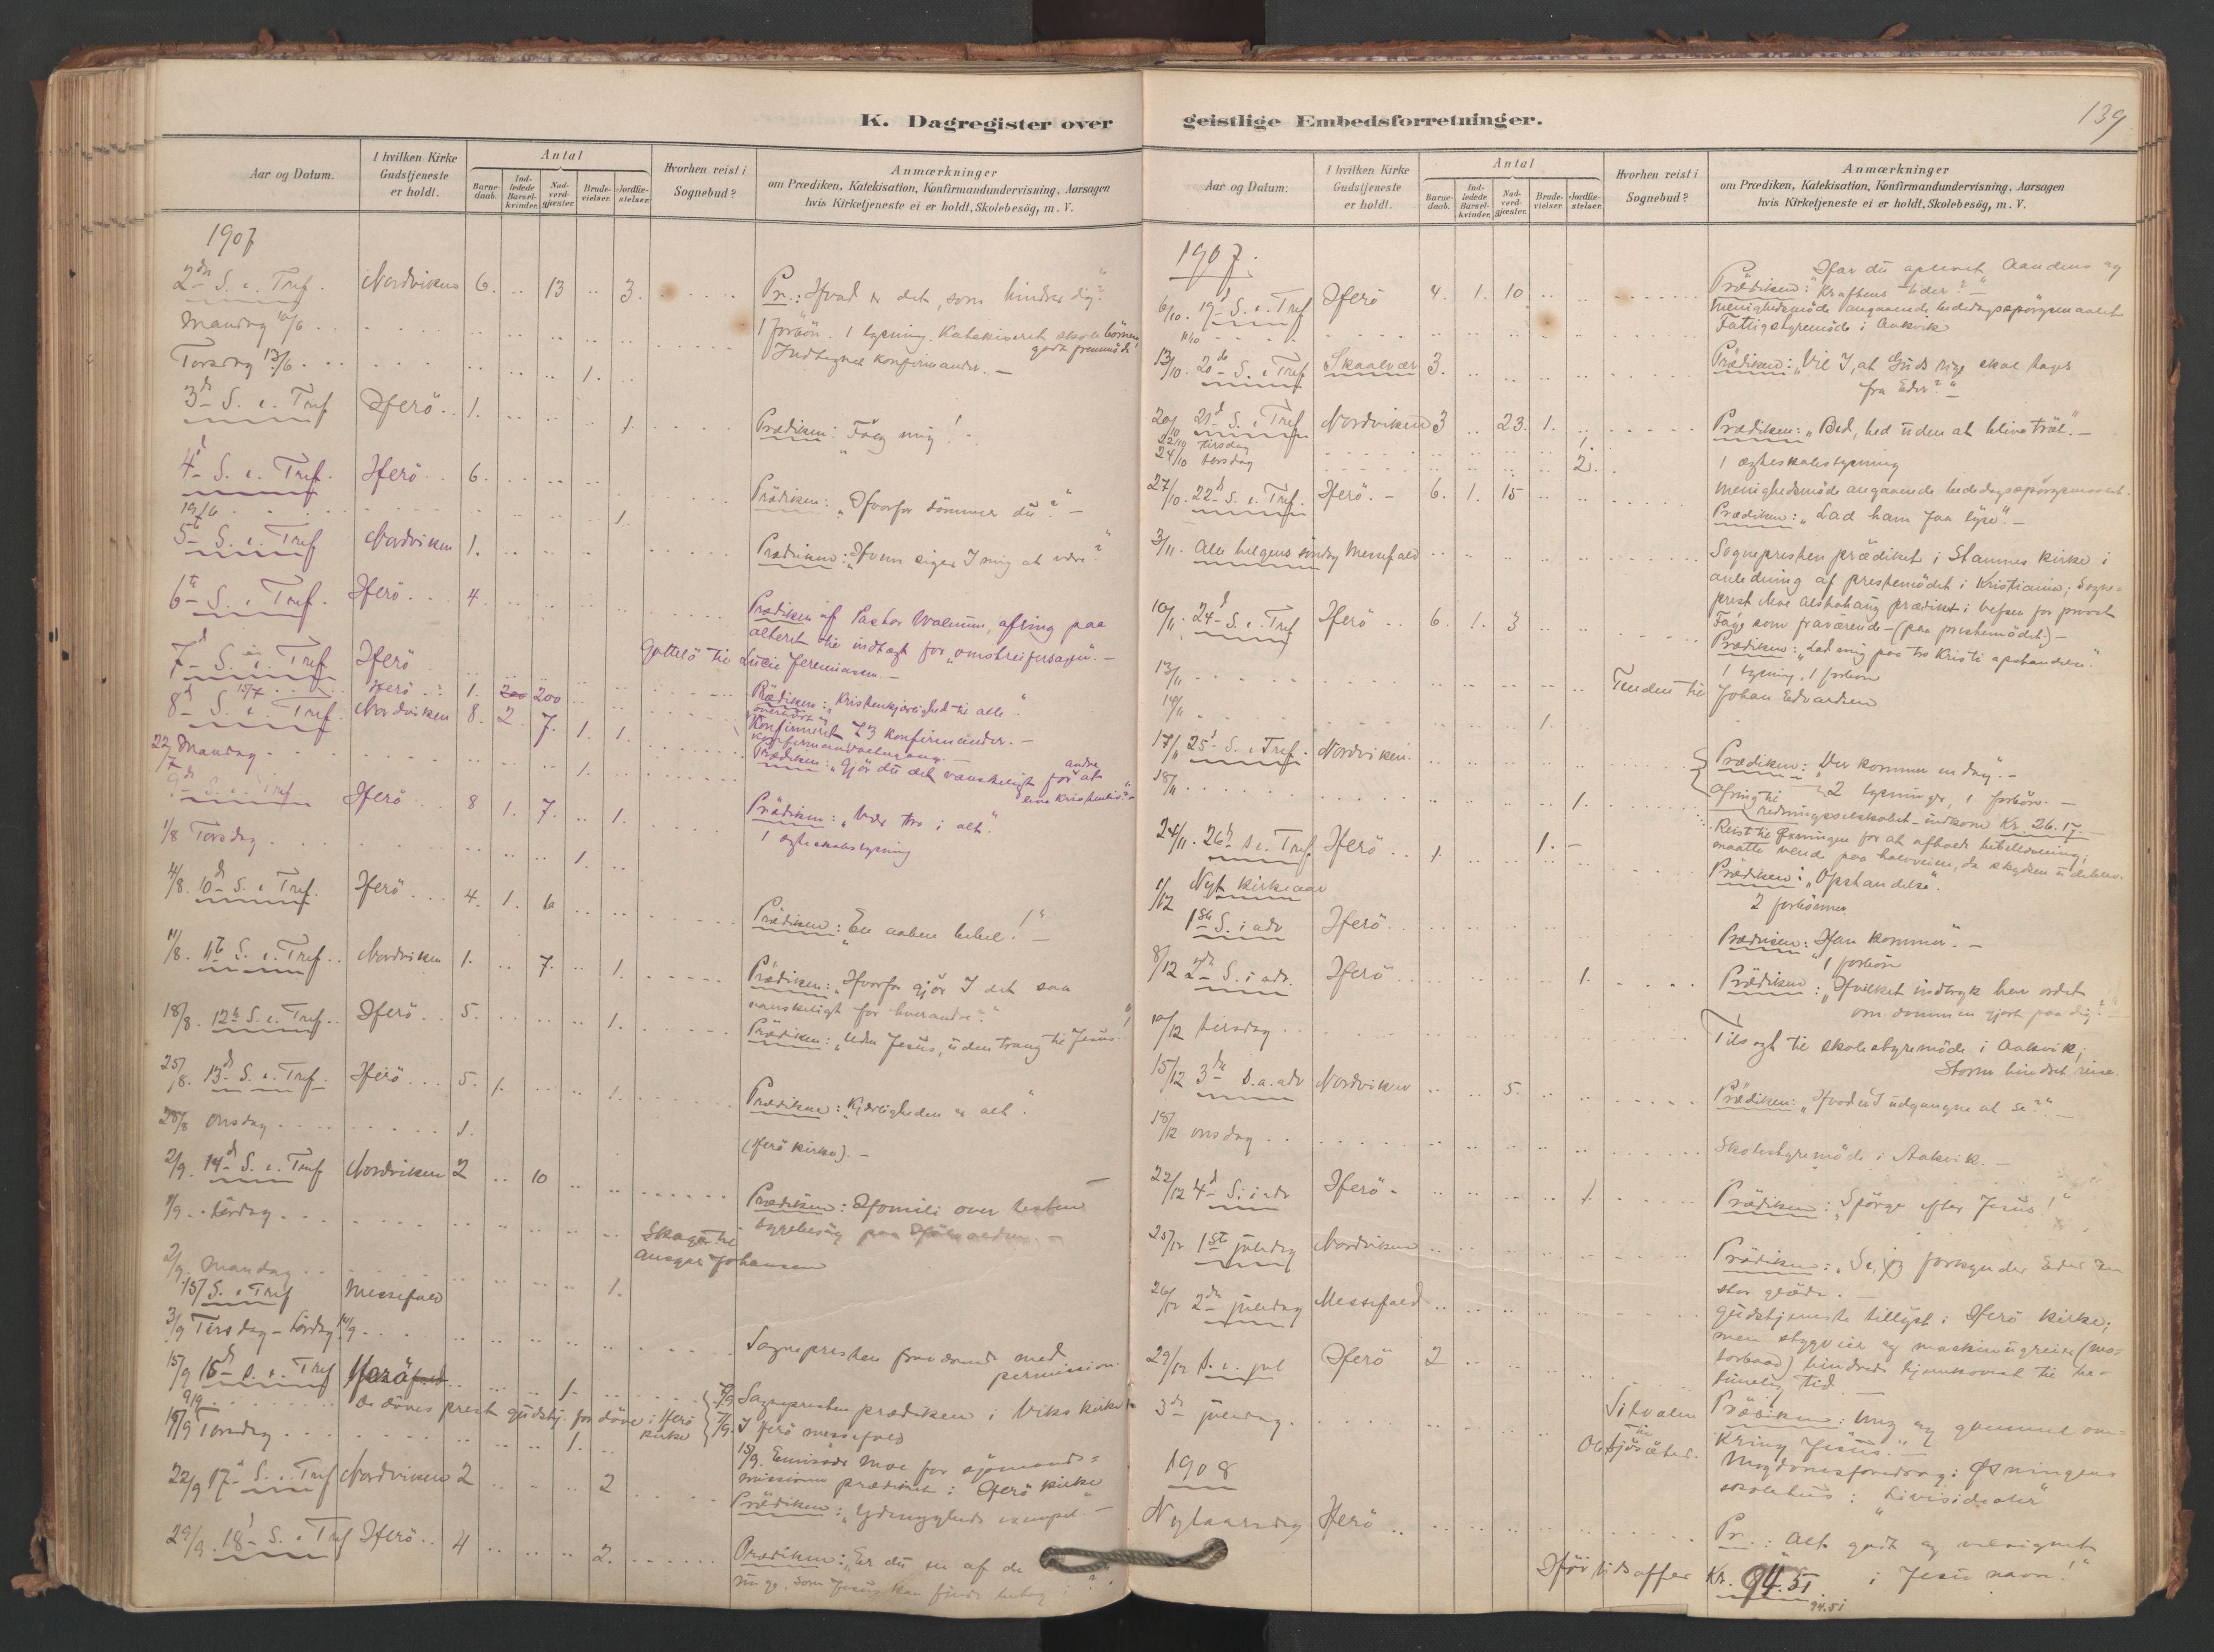 K. Dagregister over
Aar og Datum.
I hvilken Kirke Gudstjeneste er holdt.
Antal
Barne-daab.
Ind-ledede Barsel-kvinder.
Nad-verd-gjæster.
Brude-vielser.
Jordfæ-stelser.
Hvorhen reist i Sognebud?
Anmærkninger
om Prædiken, Katekisation, Konfirmandundervisning, Aarsagen
hvis Kirketjeneste ei er holdt, Skolebesög, m. V.
1907
2den S. e. Tref. Nordviken 6. 13 3. Pr.: Hvad er det, som hindrer dig?"
Mandag 10/6 1 forbön. 1 lysning. Katekiseret skolebörnene
godt fremmöde!
Torsdag 13/6 1. Indtegnet konfirmander. —
3d S. e. Tref Herö 1. 1. Prædiken: "Fölg mig!"
4d S. e. Tref. Herö 6. Prädiken: "Hvorfor dömmer du?" —
19/6 1.
5te S. e. Tref Nordviken 1. Prædiken: "Hvem siger I mig at være?"
6te S. e. Tref. Herö 4. Prædiken af Pastor Walnum, ofring paa
alteret til indtægt for "omstreifersagen". —
7d S. e. Tref Herö Gottelö til Lucie Jeremiassen. —
15/7 Herö 1. 200 200 Prædiken: "Kristenkjærlighed til alle".
8d S. e. Tref. Nordviken 8. 2 7. 1. 1. Konfirmeret 23 konfirmander. —
22/7 Mandag 1. Prædiken: "Gjör du det vanskeligt for andre at
leve kristenliv?" —
9de S. e. Tref Herö 8 1. 7. 1. Prädiken: "Vær tro i alt".
1/8 Torsdag 1. 1 ægteskabslysning
4/8. 10d S. e. Tref. Herö 4. 1. 6 Prædiken: "En aaben bibel!" —
11/8. 11te S. e. Tref. Nordviken 1. 7. 1. Prædiken: "Hvorfor gjör I det saa
vanskeligt for hverandre?"
18/8. 12te S. e. Tref. Herö 5. 1. Prædiken: "Uden Jesus, uden trang til Jesus!"
25/8. 13d S. e. Tref. Herö 5. 1. 1. Prædiken: "Kjærligheden er alt".
28/8 Onsdag 1. (Herö kirke). —
2/9. 14d S. e. Tref Nordviken 2 10 Prædiken: Homili over texten
Lördag Skaga til Ansgar Johansen sygebesög paa
2/9. Mandag 1.
15/ S. e. Tref Messefald
3/9 Tirsdag - Lördag 14/9 Sognepresten fraværende med
permission.
15/9 16d S. e. Tref Herö 1. Sognepresten prædiken i Viks kirke
De döves prest gudstj. for döve i Herö kirke I Herö messefald
19/9 Torsdag 1. 15/9. Emissær Moe for sjömands-
missionen prædiket i Herö kirke
22/9 17d S. e. Tref Nordviken 2 2 Prædiken: "Ydmyghed exempel" —
29/9. 18d S. e. Tref Herö 4 2. Prædiken: "Er du en af de
unge, som Jesus kan finde behag i?"
geistlige Embedsforretninger.
139
Aar og Datum.
I hvilken Kirke Gudstjeneste er holdt.
Antal
Barne-daab.
Ind-ledede Barsel-kvinder.
Nad-verd-gjæster.
Brude-vielser.
Jordfæ-stelser.
Hvorhen reist i Sognebud?
Anmærkninger
om Prædiken, Katekisation, Konfirmandundervisning, Aarsagen
hvis Kirketjeneste ei er holdt, Skolebesög, m. V.
1907.
6/10. 19d S. e. Tref Herö 4. 1. 10 Prædiken: "Har du oplevet Aandens og
Kraftens tider?" —
Menighedsmöde angaaende bededagsspörgsmaalet
11/10 Fattigstyremöde i Aakvik
13/10. 20de S. e. Tref Skaalvær 3. Prædiken: "Vil I, at Guds rige skal tages
fra Eder?"
20/10 21d S. e. Tref Nordviken 3 23. 1. Prædiken: "Bed, bed uden at blive træt". —
22/10 tirsdag 1.
24/10 torsdag 2. 1 ægteskabslysning
27/10. 22d S. e. Tref. Herö. 6. 1. 15 Menighedsmöde angaaende bededagsspörgsmaalet.
Prædiken: "Lad ham faa lyse". —
3/11. Alle helgens söndag Messefald Sognepresten prædiket i Stamnes kirke i
anledning af prestemödet i Kristiania; Sogne-
prest Moe Alstahaug prædiket i Vefsen for provst
Fage som fraværende — (paa prestemödet) —
10/11. 24d S. e. Tref Herö 6. 1. 3 Prædiken: "Lad mig paa tro Kristi opstandelse".
1 lysning, 1 forbön
13/11 Tenden til Johan Edvardsen
1.
17/11 25d S. e. Tref. Nordviken. Prædiken: "Der kommer en dag". —
2 lysninger, 1 forbön. —
18/11 1. Ofring til redningsselskabet — indkom Kr. 26.17. —
Reist til Öxningen for at afholde bibellæsning;
maatte vende paa halvveien, da skydsen udeblev.
24/11. 26d S. e. Tref Herö 1. 1. Prædiken: "Opstandelse".
2 forbönner
1/12 Nyt kirkeaar
1ste S. i adv Herö Prædiken: "Han kommer". —
1 forbön
8/12 2den S. i adv. Herö 1. Prædiken: "Hvilket indtryk har ordet
om dommen gjort paa dig?"
10/12 tirsdag Tilsagt til skolestyremöde i Aakvik;
Storm hindret reise.
15/12 3de S. a. adv Nordviken 5. Prædiken: "Hvad er I udgangne at se?" —
18/12 onsdag Skolestyremöde i Aakvik. —
22/12 4d S. i adv Herö 1. Prædiken: "Spörge efter Jesus!"
25/12 1ste juledag Nordviken Prædiken: "Se, jeg forkynder Eder en
stor glæde. —
26/12 2den juledag Messefald Gudstjeneste tillyst i Herö kirke;
men stygveir og maskinugreie (mo-
torbaad) hindrede fremkomst til be-
timelig tid. —
29/12 S. e. jul Herö 2 Prædiken: Ung og gammel om-
kring Jesus." —
3de juledag. Silvalen til Ole Sjösæter. Ungdomsforedrag i Öxningens
skolehus: "Livsidealer"
1908
Nytaarsdag Herö Pr.: Alt godt og velsignet
i Jesu navn!"
Höitidsoffer Kr. 94.51.
94.51